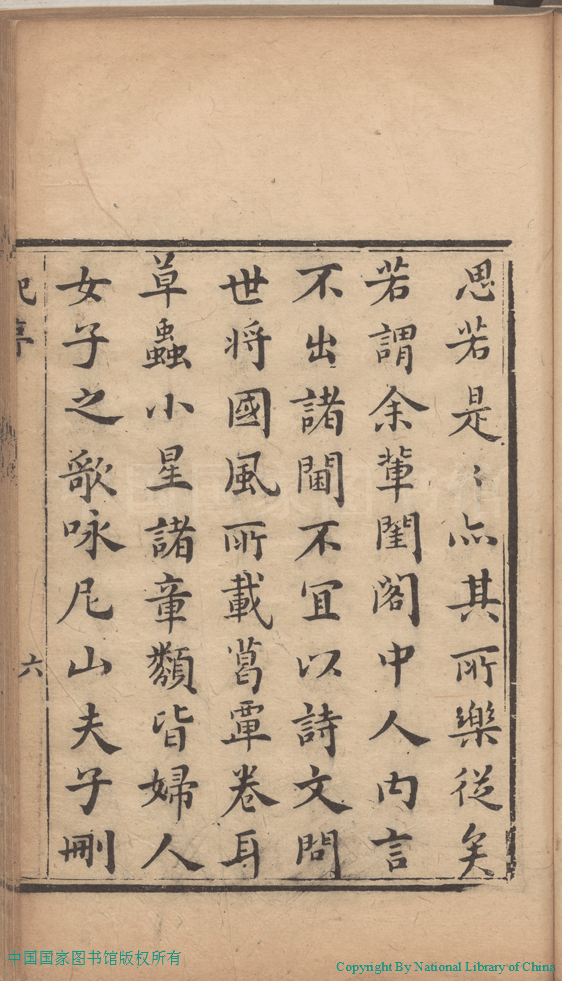 思若是〻亦其所樂從矣
若謂余輩閨閣中人內言
不出諸閫不宜以詩文問
世將國風所載葛覃卷耳
草蟲小星諸章類皆婦人
女子之歌咏尼山夫子刪
六
中国国家图书馆版权所有
Copyright By National Library of China